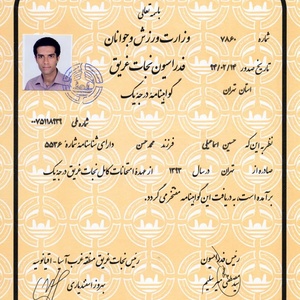 باسمه تعالی
شماره ۷۸۶۰
وزارت ورزش و جوانان
فدراسیون نجات غریق
تاریخ صدور ۹۳/۰۲/۱۴
گواهینامه درجه یک
استان تهران
شماره ملی
نظر به این که حسین اسماعیلی فرزند محمد حسن دارای شناسنامه شماره ۵۵۳۶
صادره از تهران در سال ۱۳۹۳ از عهده امتحانات کامل نجات غریق درجه یک
برآمده است، به دریافت این گواهینامه مفتخر می گردد.
رئیس فدراسیون
رئیس نجات غریق منطقه غرب آسیا - اقیانوسیه
بهروز اسفندیاری